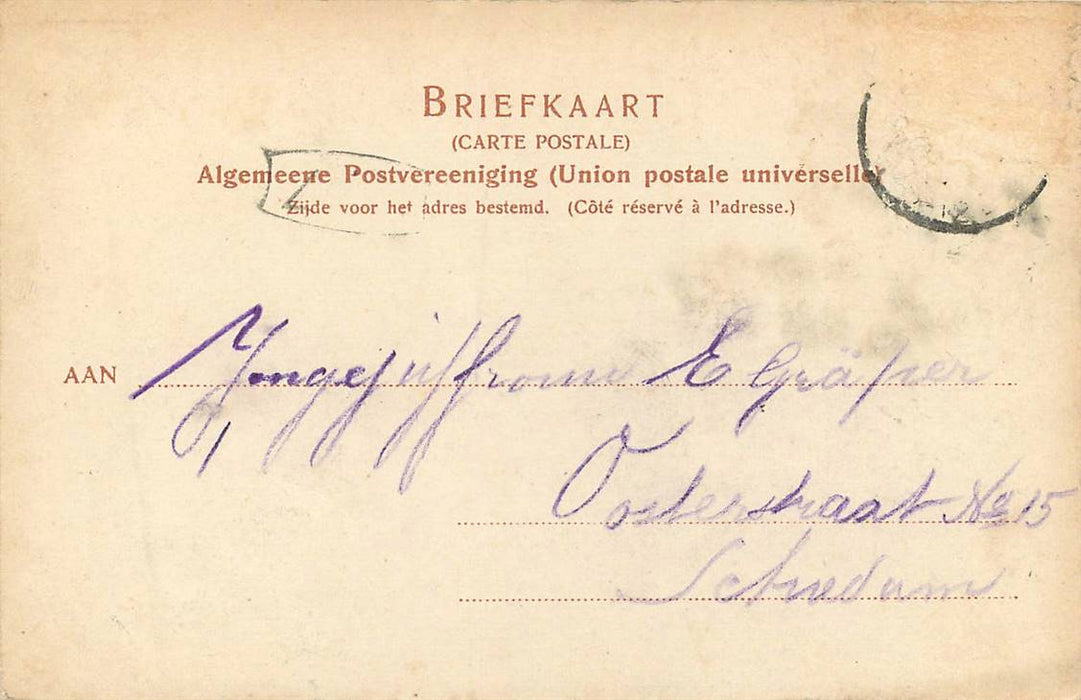 BRIEFKAART
(CARTE POSTALE)
Algemeene Postvereeniging (Union postale universelle)
Zijde voor het adres bestemd. (Côté réservé à l'adresse.)
AAN Jongejuffrouw E Gräper
Oosterstraat No 15
Schiedam